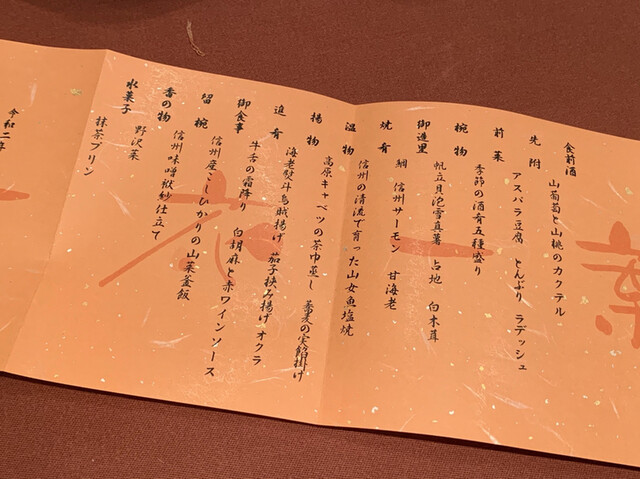 食前酒
山葡萄と山桃のカクテル
先附
アスパラ豆腐 とんぶり ラデッシュ
前菜
季節の酒肴五種盛り
椀物
帆立貝泡雪真薯 占地 白木茸
御造里
鯛 信州サーモン 甘海老
焼肴
信州の清流で育った山女魚塩焼
温物
高原キャベツの茶巾蒸し 蕎麦の実餡掛け
揚物
海老熨斗烏賊揚げ 茄子挟み揚げ オクラ
進肴
牛舌の霜降り 白胡麻と赤ワインソース
御食事
信州産こしひかりの山菜釜飯
留椀
信州味噌袱紗仕立て
香の物
野沢菜
水菓子
抹茶プリン
令和二年